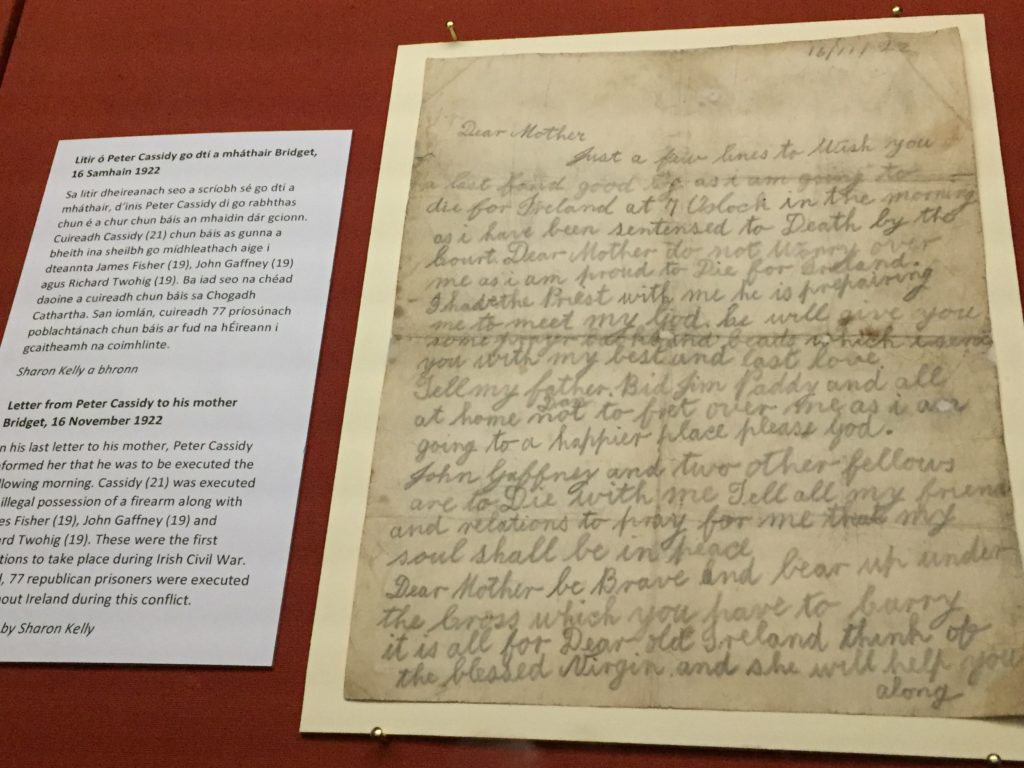 Litir ó Peter Cassidy go dtí a mháthair Bridget,
16 Samhain 1922
Sa litir dheireanach seo a scríobh sé go dtí a
mháthair, d'inis Peter Cassidy di go rabhthas
chun é a chur chun báis an mhaidin dár gcionn.
Cuireadh Cassidy (21) chun báis as gunna a
bheith ina sheilbh go mídhleathach aige i
dteannta James Fisher (19), John Gaffney (19)
agus Richard Twohig (19). Ba iad seo na chéad
daoine a cuireadh chun báis sa Chogadh
Cathartha. San iomlán, cuireadh 77 príosúnach
poblachtánach chun báis ar fud na hÉireann i
gcaitheamh na coimhlinte.
Sharon Kelly a bhronn
Letter from Peter Cassidy to his mother
Bridget, 16 November 1922
n his last letter to his mother, Peter Cassidy
formed her that he was to be executed the
llowing morning. Cassidy (21) was executed
illegal possession of a firearm along with
es Fisher (19), John Gaffney (19) and
rd Twohig (19). These were the first
tions to take place during Irish Civil War.
, 77 republican prisoners were executed
out Ireland during this conflict.
by Sharon Kelly
16/11/22
Dear Mother
Just a few lines to Wish you
a last fond good as i am going to
die for Ireland at 7 Oclock in the morning
as i have been sentensed to Death by the
Court. Dear Mother do not Worry over
me as i am proud to Die for Ireland.
I had the Priest with me he is prepairing
me to meet my God. he will give you
some prayer and beads which i send
you with my best and last love.
Tell my father. Bid Jim Paddy and all
at home not to fret over me as i am
going to a happier place please God.
John Gaffney and two other fellows
are to Die with me Tell all my friend
and relations to pray for me that my
soul shall be in peace
Dear Mother be Brave and bear up under
the Cross which you have to Carry
it is all for Dear old Ireland think of
the blessed Virgin and she will help you
along